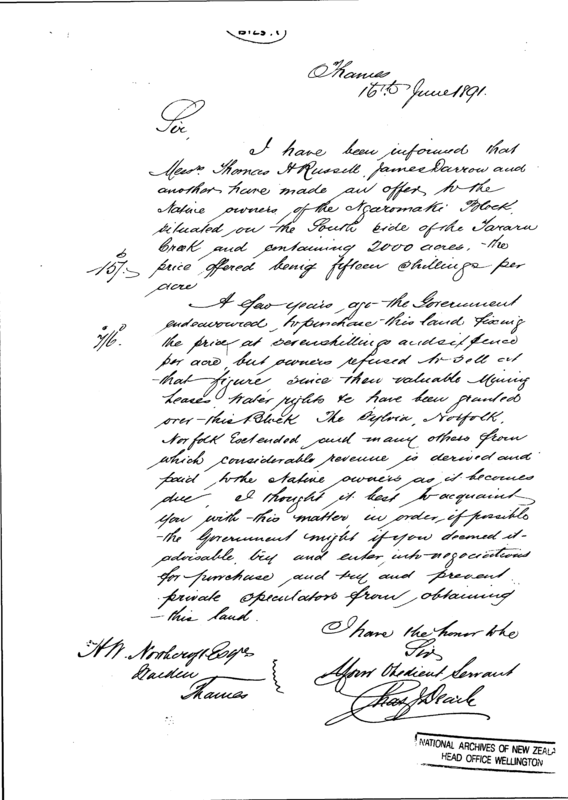 Thames
16th June 1891.
Sir,
I have been informed that
Messrs Thomas A Russell, James Darrow and
another have made an offer to the
Native owners of the Ngaromaki Block,
situated on the South side of the Tararu
Creek and containing 2000 acres, the
15/-
price offered being fifteen shillings per
acre
A few years ago the Government
endeavoured to purchase this land fixing
7/6.
the price at seven shillings and six pence
per acre, but owners refused to sell at
that figure, since then valuable Mining
Leases water rights &c have been granted
over this Block The Sylvia, Norfolk,
Norfolk Extended and many others from
which considerable revenue is derived and
paid to the Native owners as it becomes
due, I thought it best to acquaint
you with this matter in order, if possible
the Government might if you deemed it
advisable try and enter into negociations
for purchase and try and prevent
private speculators from obtaining
this land.
I have the honor to be
Sir
Your Obedient Servant
H.W. Northcroft Esqre
Warden
Thames
NATIONAL ARCHIVES OF NEW ZEALA
HEAD OFFICE WELLINGTON